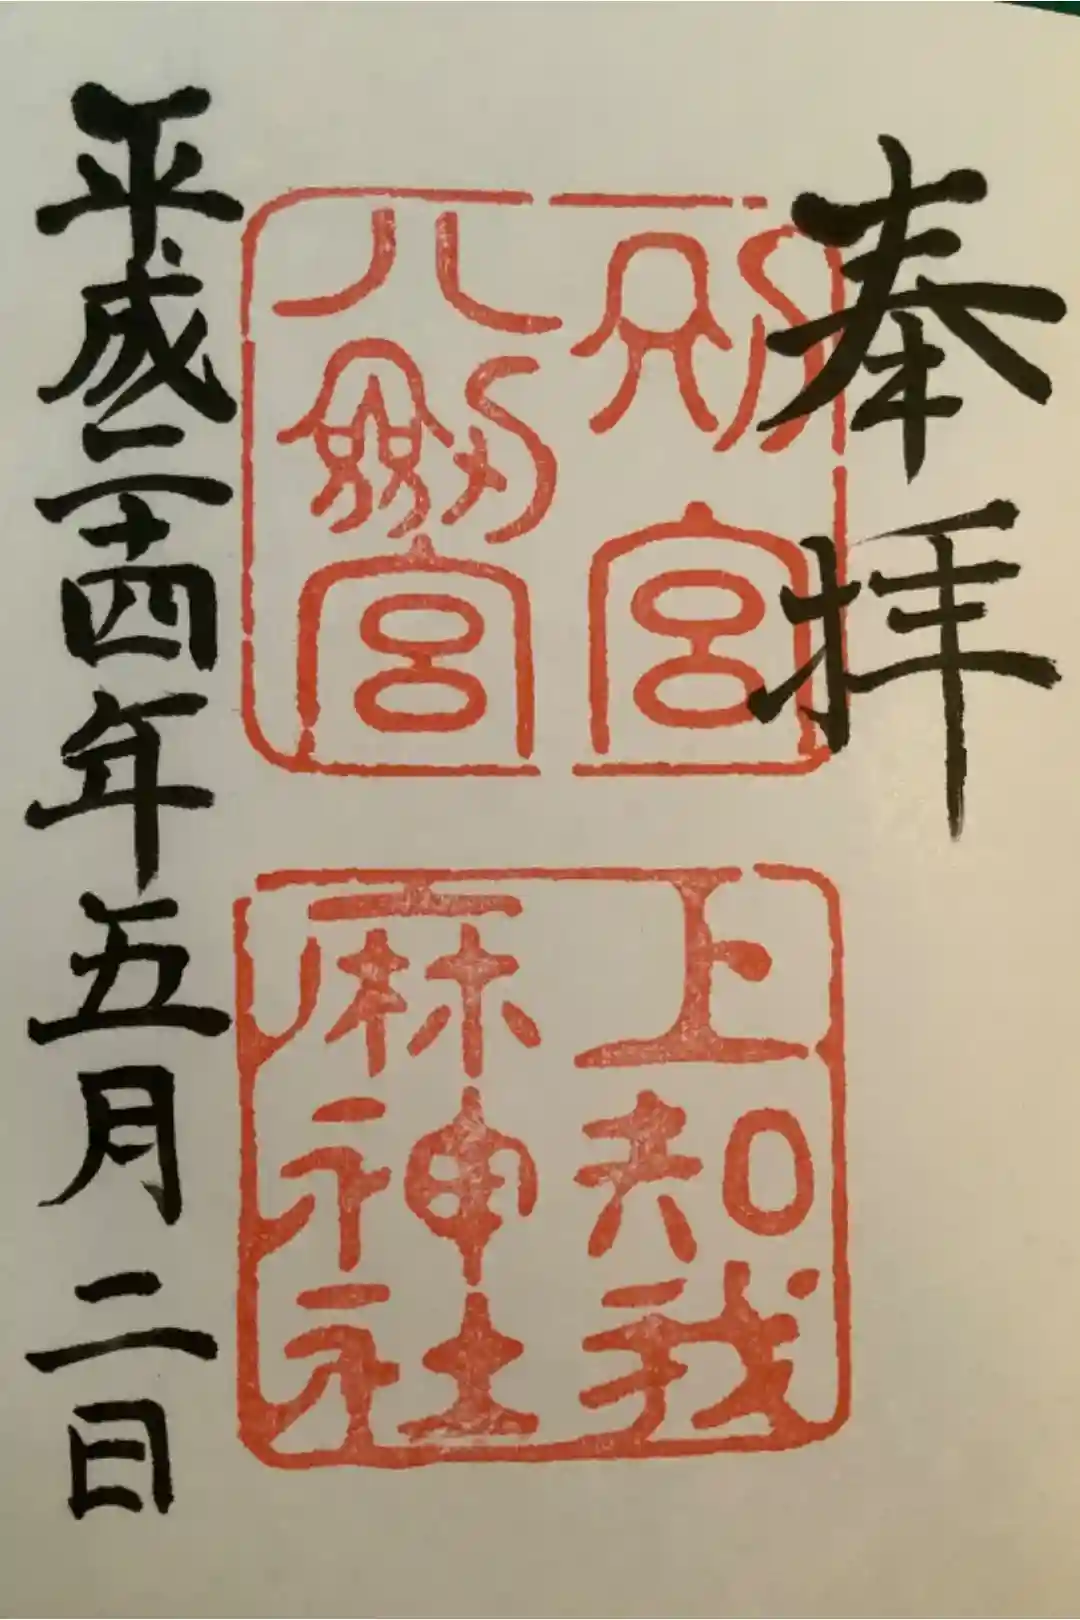 奉拝
別宮
八劒宮
上知我
麻神社
平成二十四年五月二日